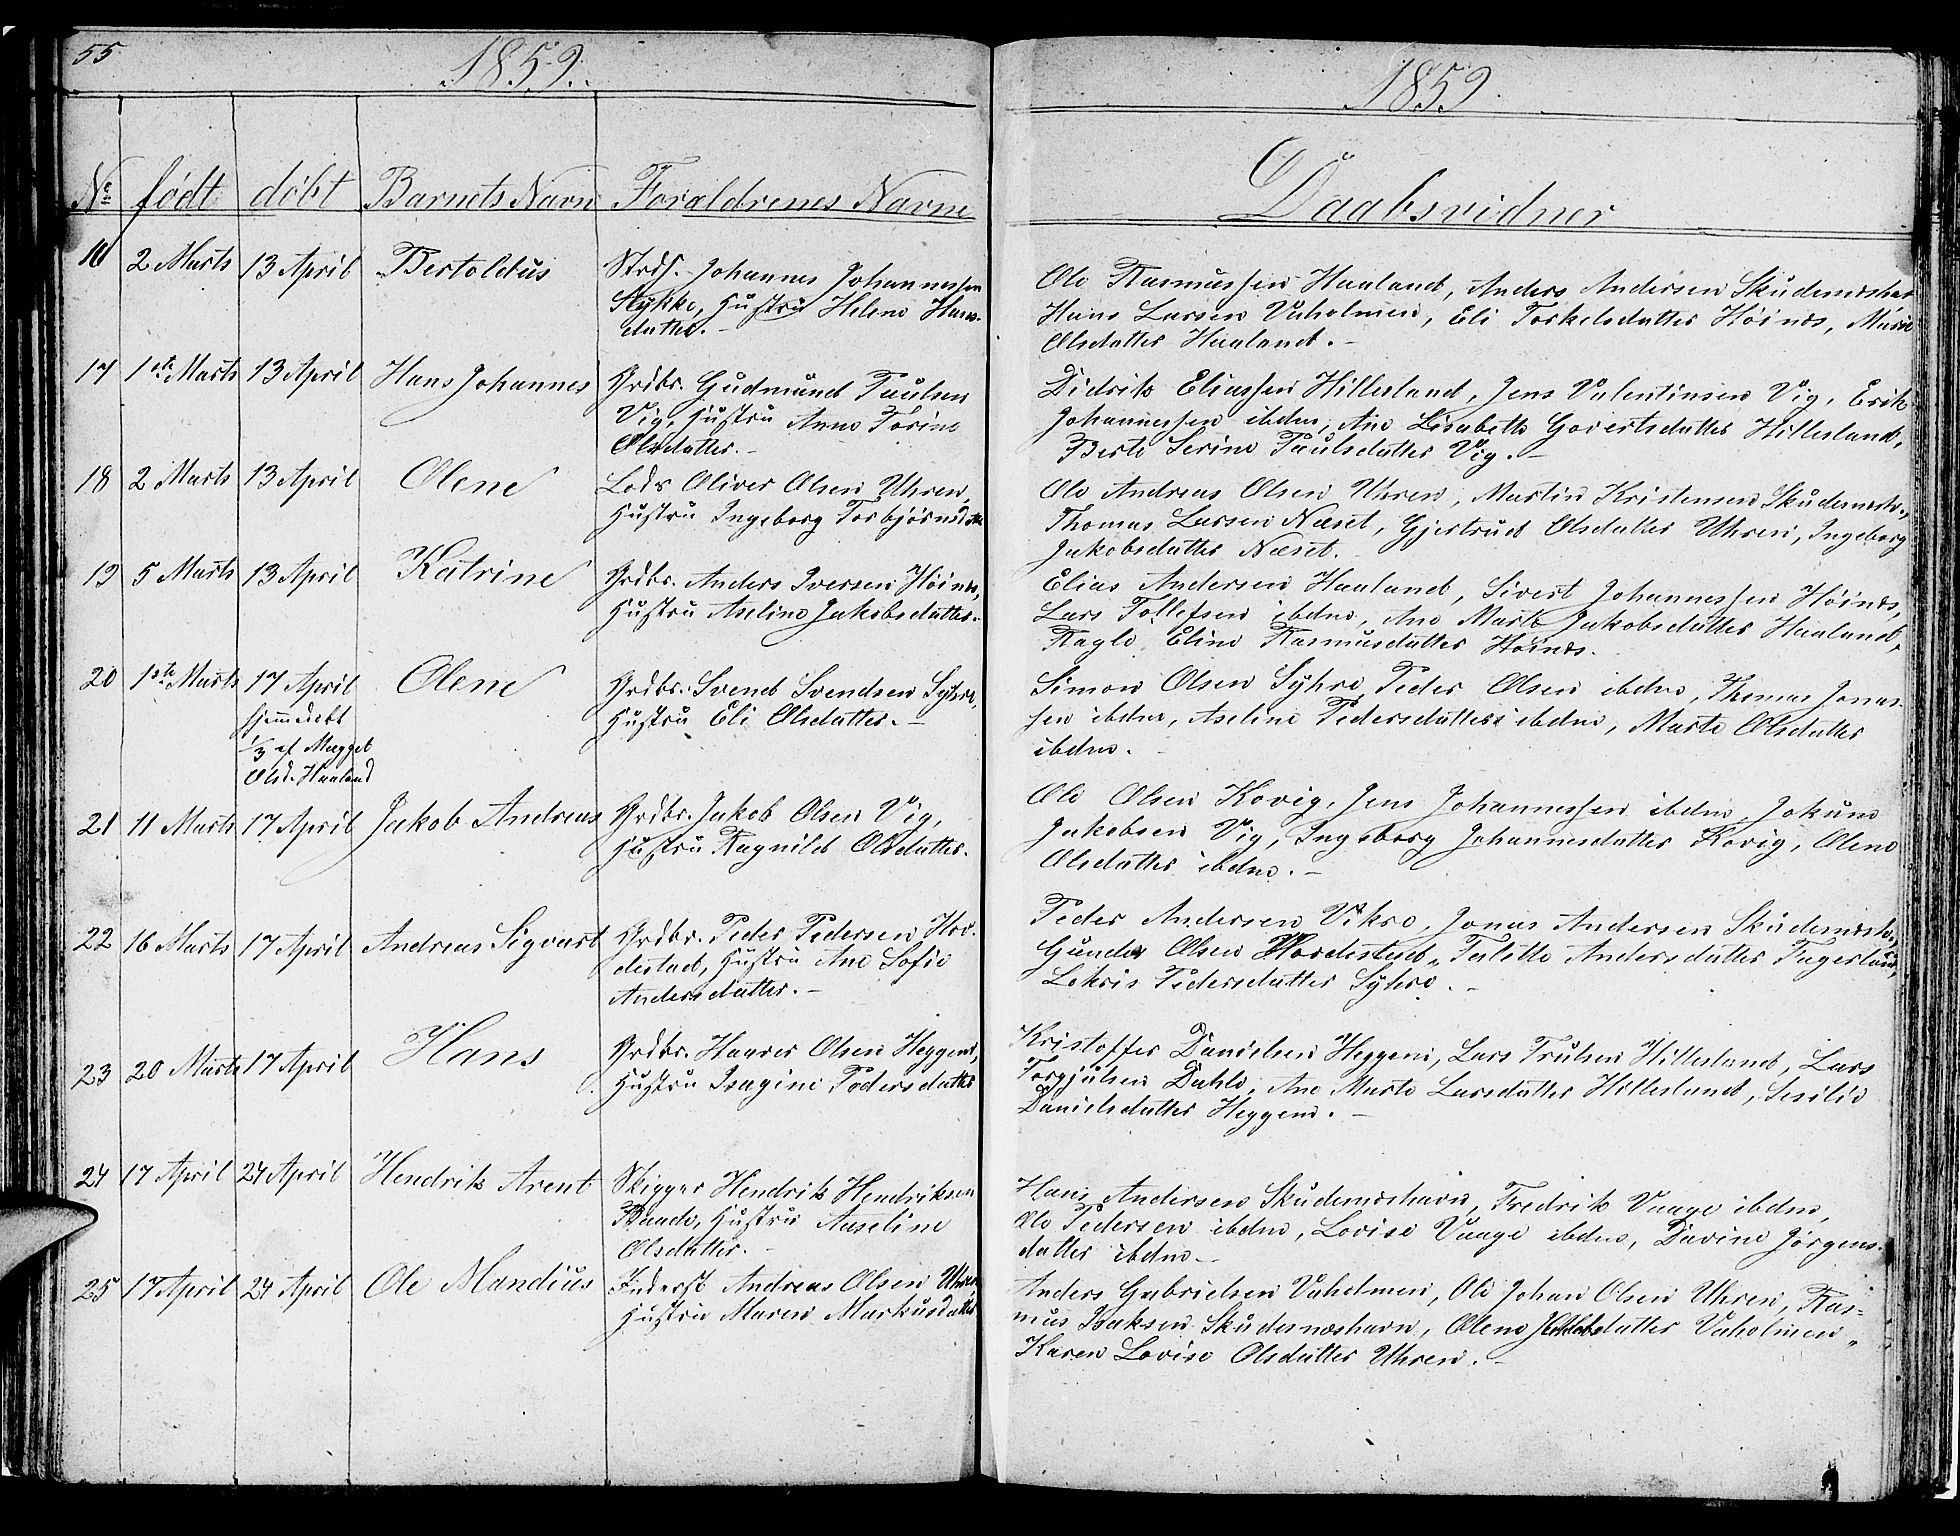 55
1859.
No født døbt Barnets Navn Forældrenes Navne
16 2 Marts 13 April Bertoldus Strds. Johannes Johannessen
Stykke, Hustru Helene Hans-
datter. -
17 1ste Marts 13 April Hans Johannes Grdbr. Gudmund Paulsen
Vig, Hustru Anne Torine
Olsdatter. -
18 2 Marts 13 April Olene Lods Oliver Olsen Uhren,
Hustru Ingeborg Torbjørnsdatt
19 5 Marts 13 April Katrine Grdbr. Anders Iversen Høines,
Hustru Aseline Jakobsdatter.
20 1ste Marts 17 April Olene Grdbr. Svend Svendsen Syhre,
hjemmedøbt Hustru Eli Olsdatter. -
1/3 af Magget
Olsd. Haaland
21 11 Marts 17 April Jakob Andreas Grdbr. Jakob Olsen Vig,
Hustru Ragnild Olsdatter.
22 16 Marts 17 April Andreas Sigvart Grdbr. Peder Pedersen Hor-
destad, Hustru Ane Sofie
Andersdatter. -
23 20 Marts 17 April Hans Grdbr. Haaver Olsen Heggem,
Hustru Pedersdatter
24 17 April 24 April Hendrik Arent Skipper Hendrik Hendriksen
Baade, Hustru Aaseline
Olsdatter. -
25 17 April 24 April Ole Mandius Inderst Andreas Olsen Uhren
Hustru Maren Markusdatter
1859.
Daabsvidner
Ole Rasmussen Haaland, Anders Andersen Skudeneshav
Hans Larsen Vaholmen, Eli Torkelsdatter Høines, Marie
Olsdatter Haaland. -
Didrik Eliassen Hillesland, Jens Valentinsen Vig, Erik
Johannessen ibdm, Ane Lisabeth Govertsdatter Hillesland,
Berte Serine Paulsdatter Vig. -
Ole Andreas Olsen Uhren, Martin Kristensen Skudenesh.,
Thomas Larsen Næset, Gjertrud Olsdatter Uhren, Ingeborg
Jakobsdatter Næset.
Elias Andersen Haaland, Sivert Johannessen Høines,
Lars Tollefsen ibdm, Ane Marte Jakobsdatter Haaland,
Eline Rasmusdatter Høines.
Simon Olsen Syhre, Peder Olsen ibdm, Thomas Jonas-
sen ibdm, Aseline Pedersdatter ibdm, Marte Olsdatter
ibdm. -
Ole Olsen Kovig, Jens Johannessen ibdm, Jokum
Jakobsen Vig, Ingeborg Johannesdatter Kovig, Olene
Olsdatter ibdm. -
Peder Andersen Vikre, Jonas Andersen Skudenesh.,
Gunder Olsen Hordestad, Talette Andersdatter Fagerland,
Lokris Pedersdatter Syhre. -
Kristoffer Danielsen Heggem, Lars Trulsen Hillesland, Lars
Torgjulsen Dahle, Ane Marte Larsdatter Hillesland, Sesilie
Danielsdatter Heggem. -
Hans Andersen Skudeneshavn, Fredrik Vaage ibdm,
Ole Pedersen ibdm, Lovise Vaage ibdm, Davine Jørgens-
datter ibdm -
Anders Gabrielsen Vaholmen, Ole Johan Olsen Uhren, Ras-
mus Isaksen Skudesnæshavn, Olene Vaholmen,
Karen Lovise Olsdatter Uhren. -